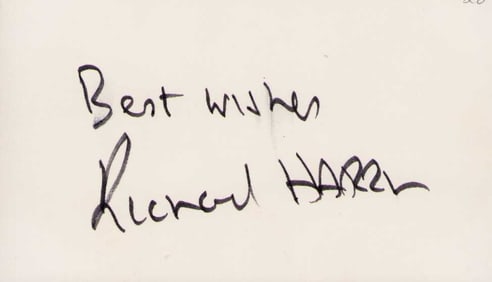 Best wishes
Richard HARRIS